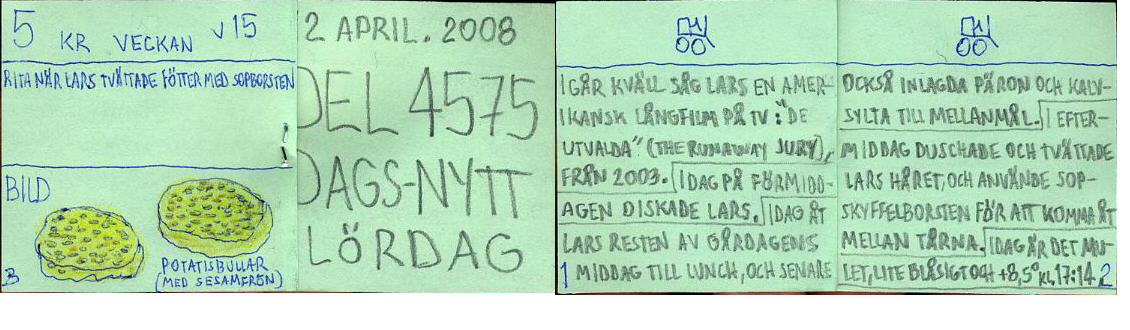 5 KR VECKAN V15
RITA NÄR LARS TVÄTTADE FÖTTER MED SOPBORSTEN
BILD
POTATISBULLAR
(MED SESAMFRÖN)
B
2 APRIL. 2008
DEL 4575
DAGS-NYTT
LÖRDAG
IGÅR KVÄLL SÅG LARS EN AMER-
IKANSK LÅNGFILM PÅ TV: "DE
UTVALDA" (THE RUNAWAY JURY),
FRÅN 2003. IDAG PÅ FÖRMIDD-
AGEN DISKADE LARS. IDAG ÅT
LARS RESTEN AV GÅRDAGENS
MIDDAG TILL LUNCH, OCH SENARE
1
OCKSÅ INLAGDA PÄRON OCH KALV-
SYLTA TILL MELLANMÅL. I EFTER-
MIDDAG DUSCHADE OCH TVÄTTADE
LARS HÅRET, OCH ANVÄNDE SOP-
SKYFFELBORSTEN FÖR ATT KOMMA ÅT
MELLAN TÅRNA. IDAG ÄR DET MU-
LET, LITE BLÅSIGT OCH +8,5° KL. 17:14.
2